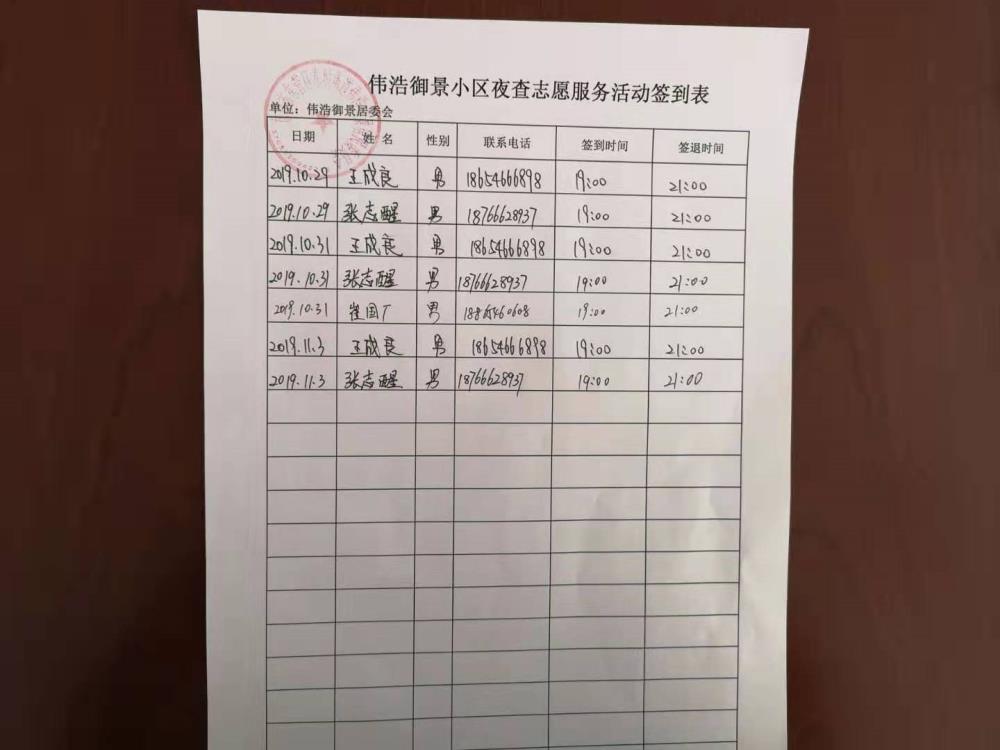 伟浩御景小区夜查志愿服务活动签到表
单位：伟浩御景居委会
日期 姓名 性别 联系电话 签到时间 签退时间
2019.10.29 王成良 男 18654666898 19:00 21:00
2019.10.29 张志醒 男 18766628937 19:00 21:00
2019.10.31 王成良 男 18654666898 19:00 21:00
2019.10.31 张志醒 男 18766628937 19:00 21:00
2019.10.31 崔国广 男 19:00 21:00
2019.11.3 王成良 男 18654666898 19:00 21:00
2019.11.3 张志醒 男 18766628937 19:00 21:00